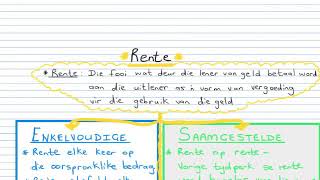 Rente
* Rente: Die fooi wat deur die lener van geld betaal word
aan die uitlener as 'n vorm van vergoeding
vir die gebruik van die geld
ENKELVOUDIGE
SAAMGESTELDE
* Rente elke keer op
die oorspronklike bedrag
* Rente op rente -
vorige tydperk se rente
* Rente